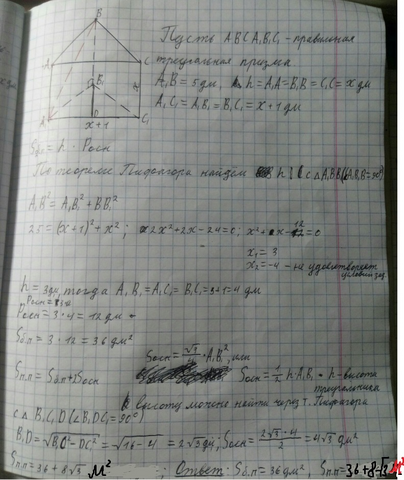 B
A C
A₁ B₁ C₁
x+1
x
D
Пусть ABCA₁B₁C₁ - правильная
треугольная призма
A₁B = 5 дм, h = A₁A = B₁B = C₁C = x дм
A₁C₁ = A₁B₁ = B₁C₁ = x+1 дм
Sбп = h · Pосн
По теореме Пифагора найдём h с ΔA₁BB₁ (∠A₁B₁B=90°)
A₁B² = A₁B₁² + BB₁²
25 = (x+1)² + x²; 2x²+2x-24=0; x²+x-12=0
x₁ = 3
x₂ = -4 - не удовлетворяет
h = 3 дм, тогда A₁B₁ = A₁C₁ = B₁C₁ = 3+1 = 4 дм
Pосн = 3·4 = 12 дм
Sбп = 3·12 = 36 дм²
Sпп = Sбп + 2Sосн
Sосн = √3/4 · A₁B₁², или
Sосн = 1/2 h A₁B₁ h - высота
треугольника
высоту можно найти через т. Пифагора
с ΔB₁C₁D (∠B₁DC₁ = 90°)
B₁D = √B₁C₁² - DC₁² = √16-4 = 2√3 дм; Sосн = 2√3·4/2 = 4√3 дм²
Sпп = 36 + 8√3 м²; Ответ: Sбп = 36 дм², Sпп = 36+8√3 м²